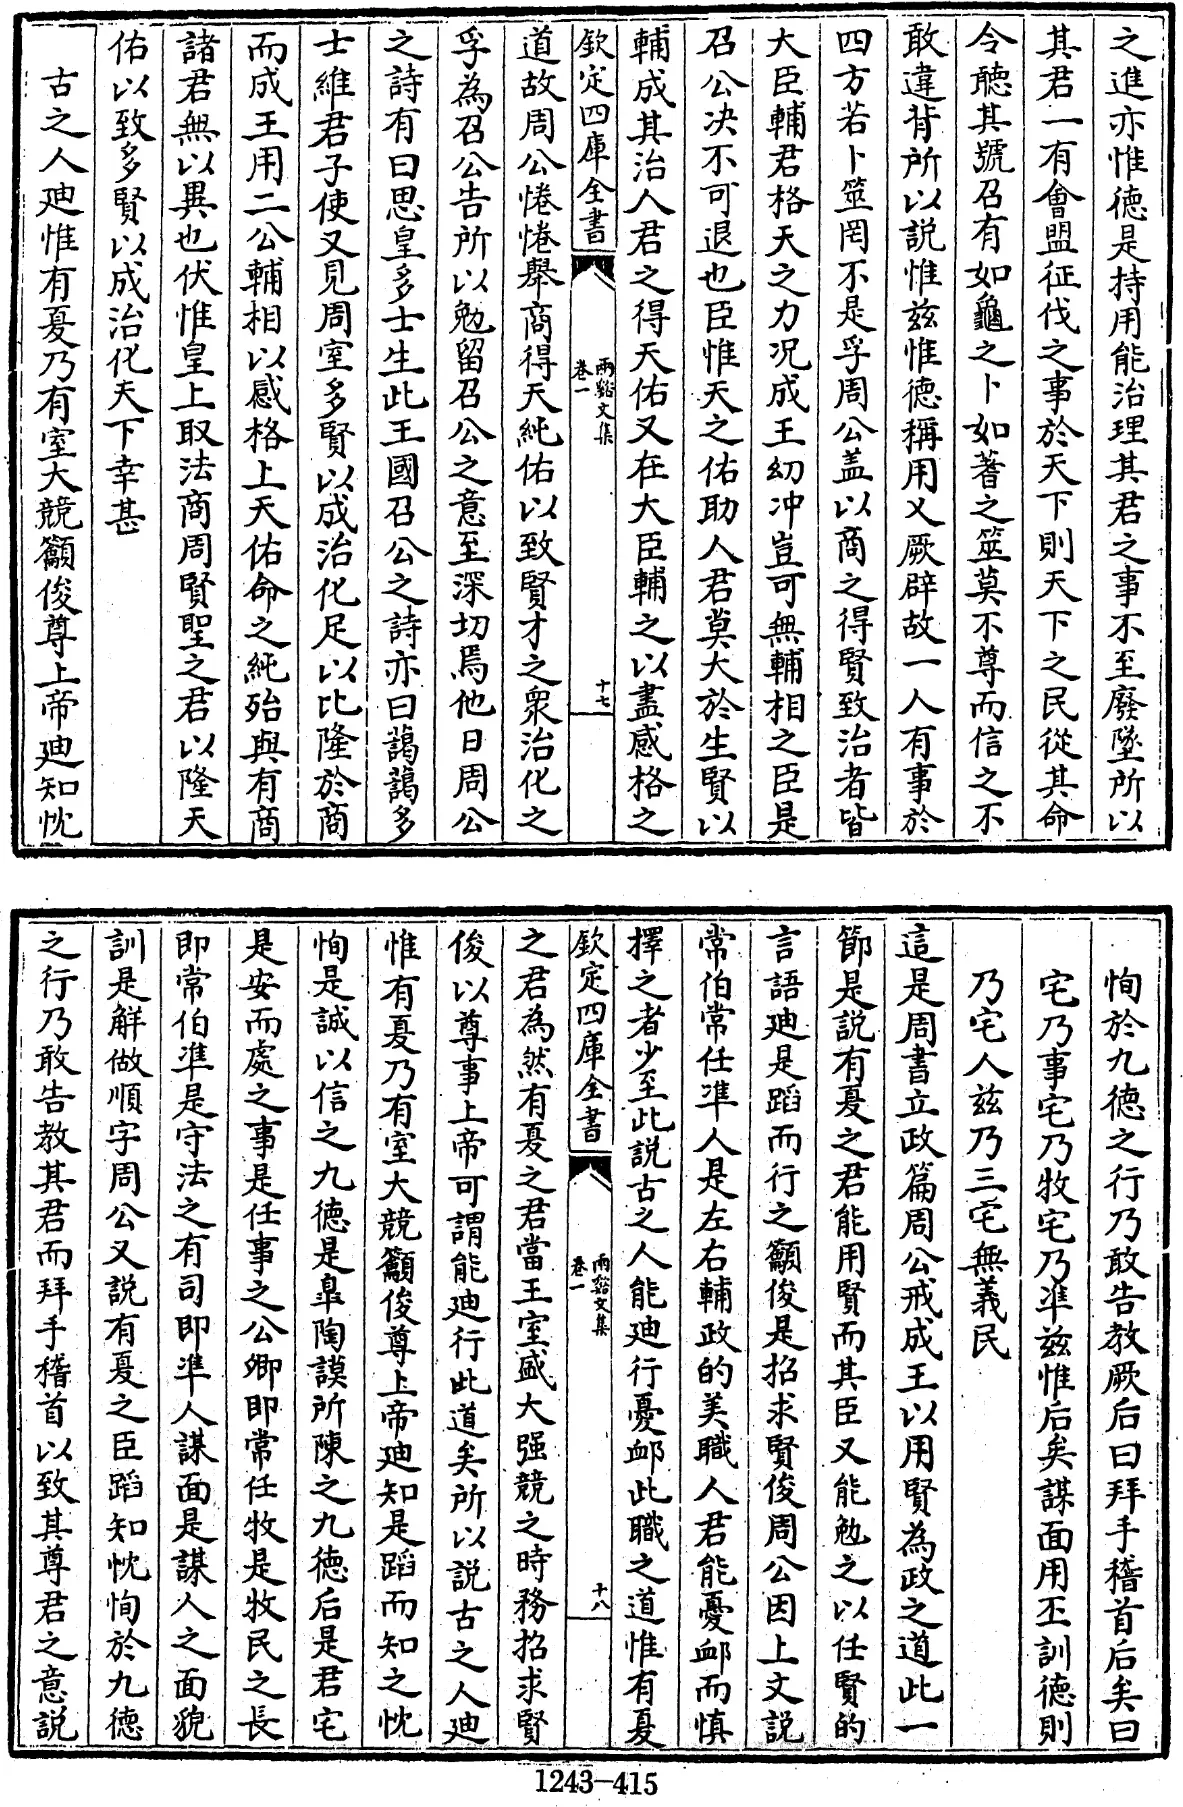 之進亦惟德是持用能治理其君之事不至廢墜所以
其君一有會盟征伐之事於天下則天下之民從其命
令聽其號召有如龜之卜如蓍之筮莫不尊而信之不
敢違背所以說惟茲惟德稱用乂厥辟故一人有事於
四方若卜筮罔不是孚周公盖以商之得賢致治者皆
大臣輔君格天之力况成王幼冲豈可無輔相之臣是
召公决不可退也臣惟天之佑助人君莫大於生賢以
輔成其治人君之得天佑又在大臣輔之以盡感格之
欽定四庫全書
兩谿文集
卷一
十七
道故周公惓惓舉商得天純佑以致賢才之衆治化之
孚為召公告所以勉留召公之意至深切焉他日周公
之詩有曰思皇多士生此王國召公之詩亦曰藹藹多
士維君子使又見周室多賢以成治化足以比隆於商
而成王用二公輔相以感格上天佑命之純殆與有商
諸君無以異也伏惟皇上取法商周賢聖之君以隆天
佑以致多賢以成治化天下幸甚
古之人廸惟有夏乃有室大競籲俊尊上帝廸知忱
恂於九德之行乃敢告教厥后曰拜手稽首后矣曰
宅乃事宅乃牧宅乃凖兹惟后矣謀面用丕訓德則
乃宅人兹乃三宅無義民
這是周書立政篇周公戒成王以用賢為政之道此一
節是說有夏之君能用賢而其臣又能勉之以任賢的
言語廸是蹈而行之籲俊是招求賢俊周公因上文說
常伯常任凖人是左右輔政的美職人君能憂䘏而慎
擇之者少至此說古之人能廸行憂䘏此職之道惟有夏
欽定四庫全書
兩谿文集
卷一
十八
之君為然有夏之君當王室盛大强競之時務招求賢
俊以尊事上帝可謂能廸行此道矣所以說古之人廸
惟有夏乃有室大競籲俊尊上帝廸知是蹈而知之忱
恂是誠以信之九德是臯陶謨所陳之九德后是君宅
是安而處之事是任事之公卿即常任牧是牧民之長
即常伯凖是守法之有司即凖人謀面是謀人之面貌
訓是解做順字周公又說有夏之臣蹈知忱恂於九德
之行乃敢告教其君而拜手稽首以致其尊君之意說
1243-415